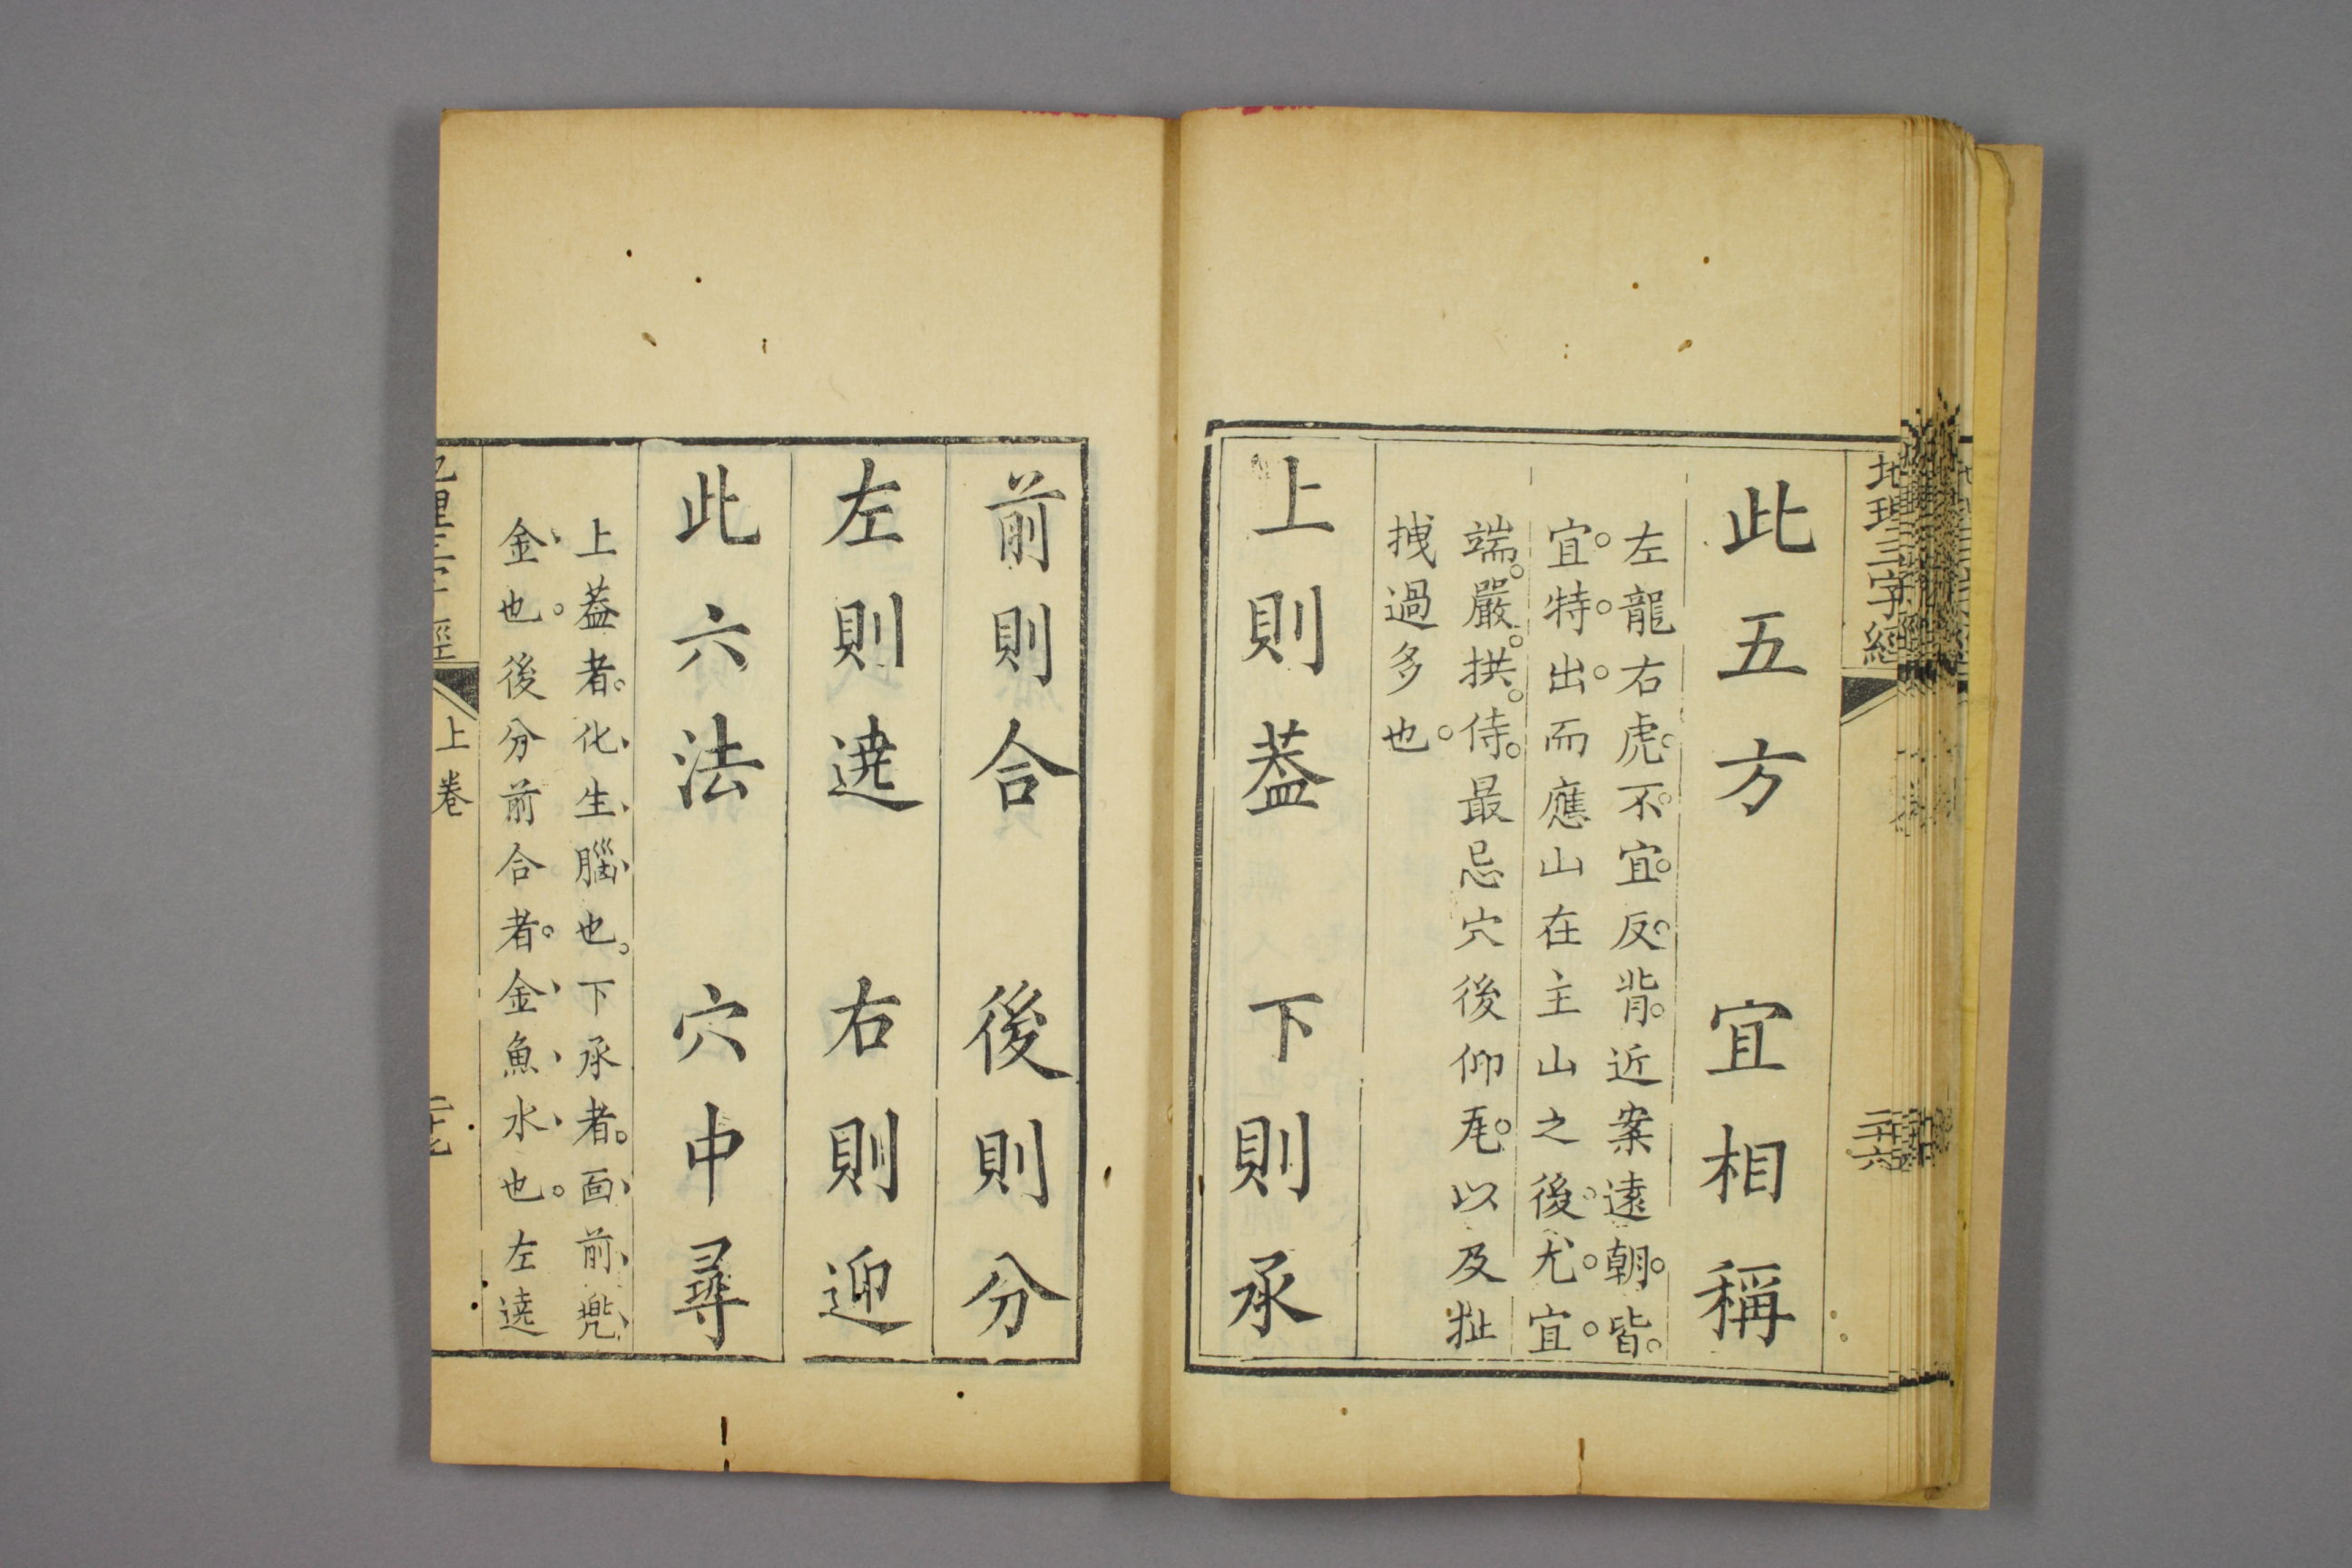 地理三字經
二十六
此五方　宜相稱
左龍右虎。不。宜。反。背。近案遠朝。皆。
宜。特。出。而應山在主山之後。尤。宜。
端。嚴。拱。侍。最忌穴後仰瓦。以及扯
拽過多也。
上則葢　下則承
前則合　後則分
左則遶　右則迎
此六法　穴中尋
上葢者。化、生、腦、也。下承者。面、前、兠、
金、也。後分前合者。金、魚、水、也。左遶
上卷